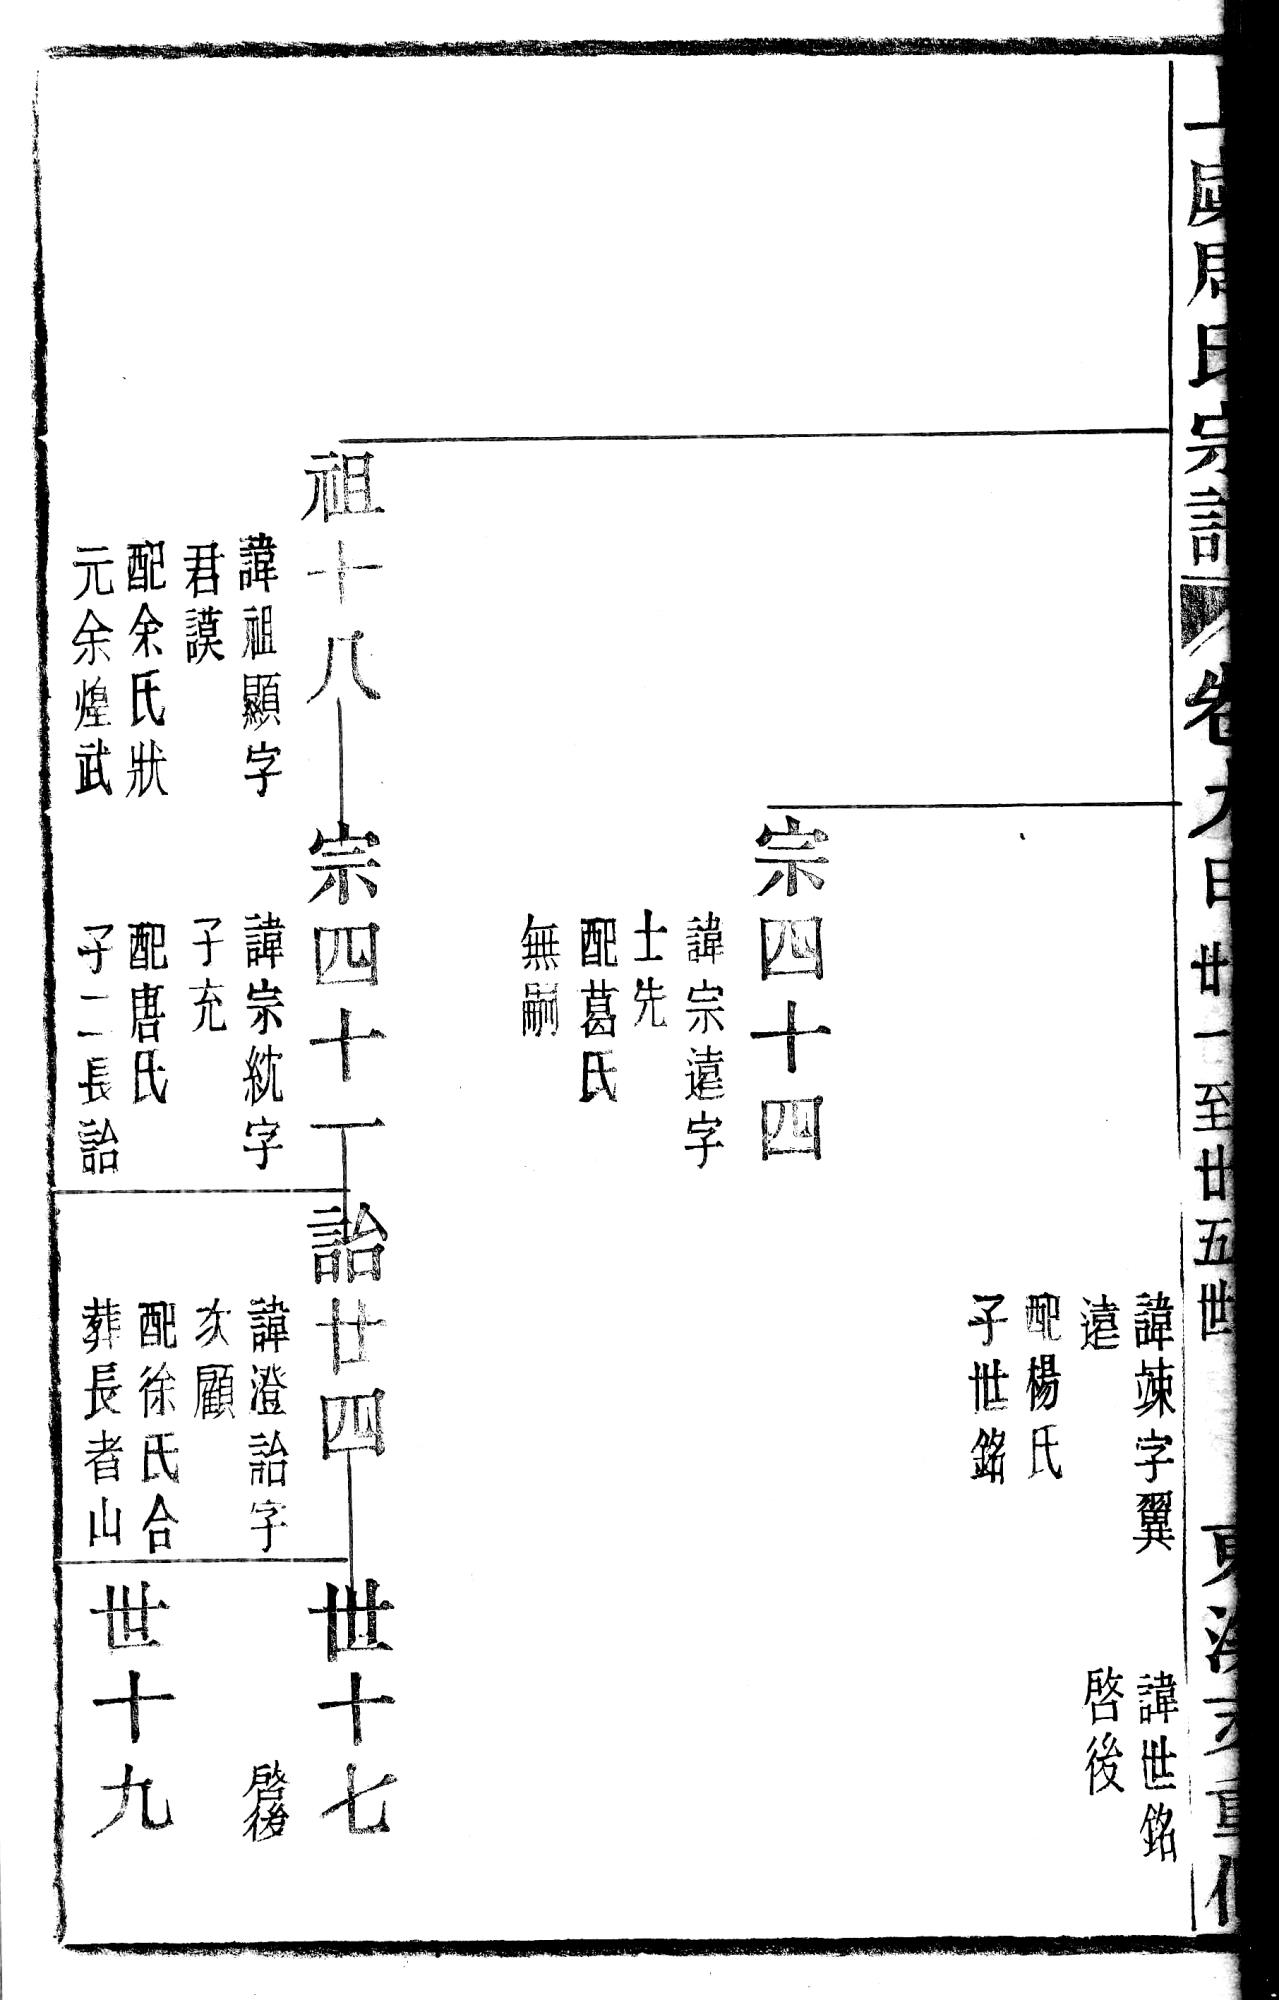 周氏宗譜
卷九 廿一至廿五世
諱竦字翼
遠
配楊氏
子世銘
諱世銘
啓後
宗四十四
諱宗遠字
士先
配葛氏
無嗣
祖十八
諱祖顯字
君謨
配余氏狀
元余煌武
宗四十一
諱宗統字
子充
配唐氏
子二長詒
詒廿四
諱澄詒字
次顧
配徐氏合
葬長者山
世十七
啓後
世十九